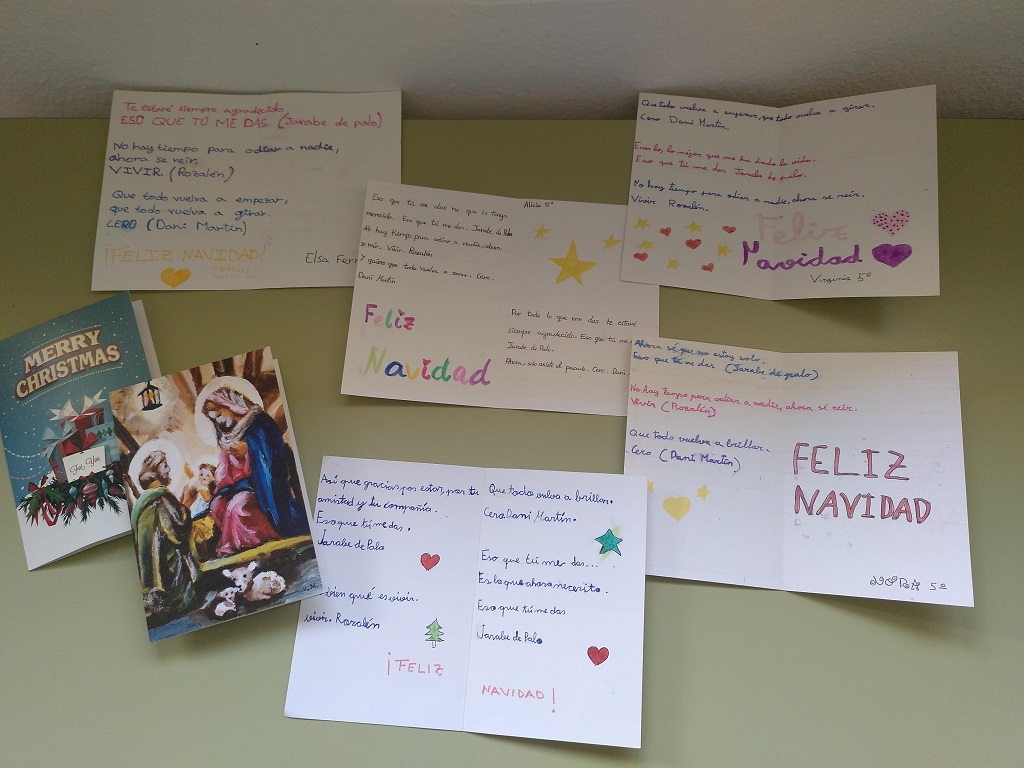 Te estaré siempre agradecido
ESO QUE TÚ ME DAS. (Jarabe de palo)
No hay tiempo para odiar a nadie,
ahora se reir.
VIVIR (Rozalén)
Que todo vuelva a empezar,
que todo vuelva a girar.
CERO (Dani Martín)
¡FELIZ NAVIDAD!
Elsa Ferr
Alicia 5º
Eso que tú me das no que lo tengo
merecido. Eso que tú me das. Jarabe de Palo
No hay tiempo para odiar a nadie, ahora
se reir. Vivir. Rozalén
Y quiero que todo vuelva a Cero.
Dani Martín
Feliz
Navidad
Por todo lo que me das te estaré
siempre agradecido. Eso que tú me
Jarabe de Palo.
Ahora, solo existe el pasado. Cero. Dani
Que todo vuelva a empezar, que todo vuelva a girar.
Cero Dani Martín.
lo mejor que me ha dado la vida.
Eso que tú me das Jarabe de palo.
No hay tiempo para odiar a nadie, ahora se reír.
Vivir Rozalén.
Feliz
Navidad
Virginia 5º
MERRY
CHRISTMAS
For You
Ahora sé que no estoy solo.
Eso que tú me das (Jarabe de palo)
No hay tiempo para odiar a nadie, ahora sé reír.
Vivir (Rozalén)
Que todo vuelva a brillar.
Cero (Dani Martín)
FELIZ
NAVIDAD
5º
Así que gracias por estar, por tu
amistad y tu compañía.
Eso que tú me das.
Jarabe de Palo
bien qué es vivir.
vivir. Rozalén
¡FELIZ
Que todo vuelva a brillar.
Cero Dani Martín.
Eso que tú me das...
Es lo que ahora necesito.
Eso que tú me das
Jarabe de Palo
NAVIDAD!